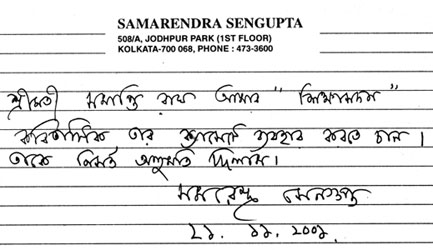 SAMARENDRA SENGUPTA
508/A, JODHPUR PARK (1ST FLOOR)
KOLKATA-700 068, PHONE : 473-3600
শ্রীমতী রায় আমার " "
কবিতাটিকে তার ব্যবহার করতে চান।
তাকে অনুমতি দিলাম।
সমরেন্দ্র সেনগুপ্ত
২১. ১১. ২০০১